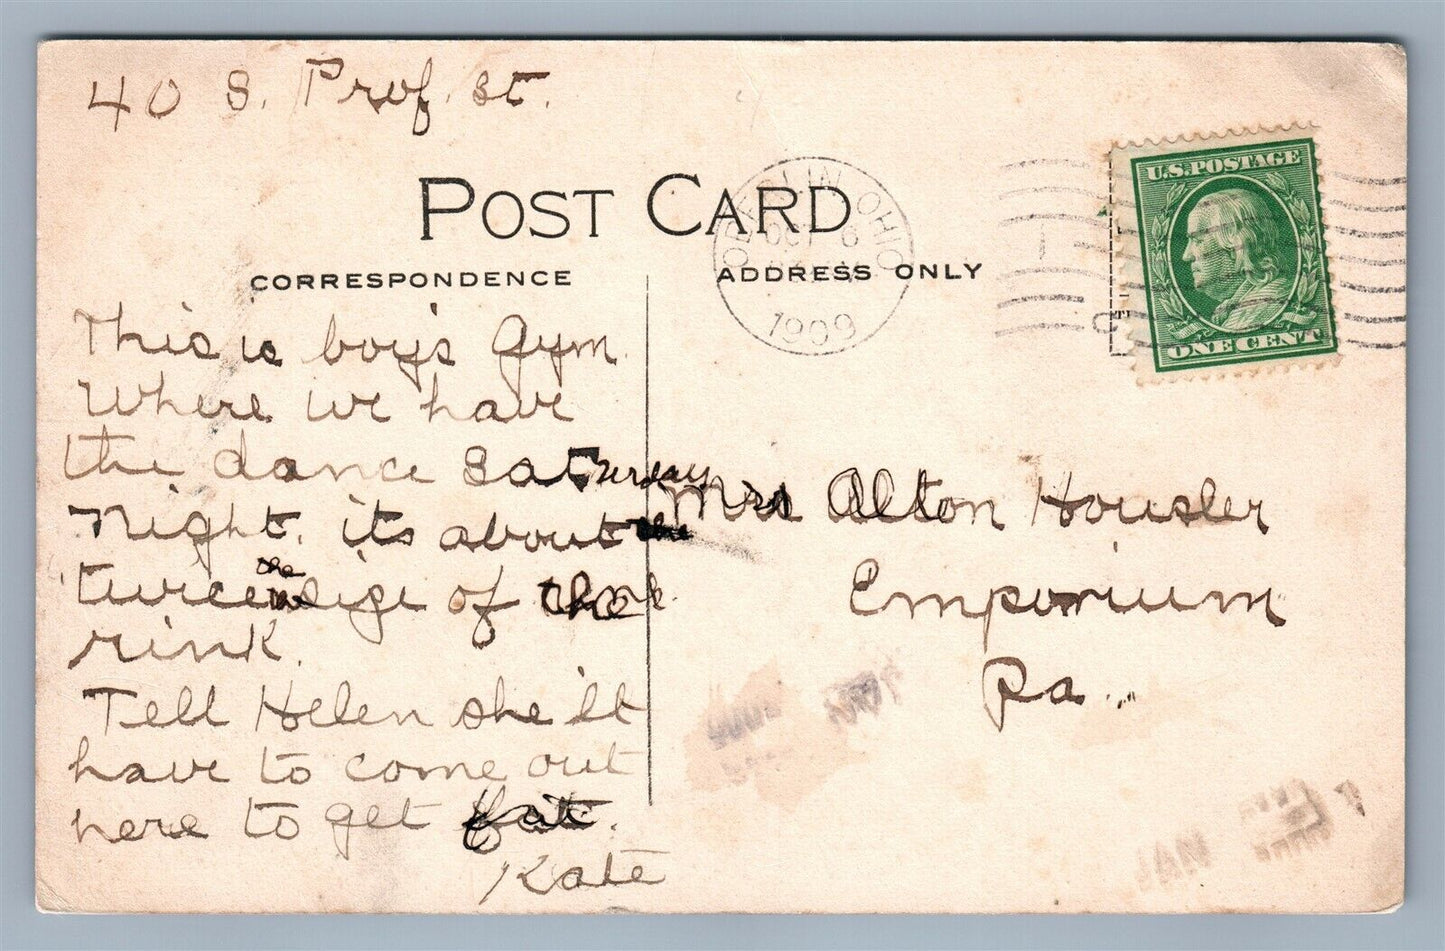 40 S. Prof. St.
POST CARD
CORRESPONDENCE
ADDRESS ONLY
OBERLIN, OHIO
OCT 6
1909
U.S. POSTAGE
ONE CENT
This is boy's Gym.
Where we have
the dance Saturday
Night. its about
twice the size of the
rink.
Tell Helen she'll
have to come out
here to get fat.
Kate
Mrs Alton Housler
Emporium
Pa.